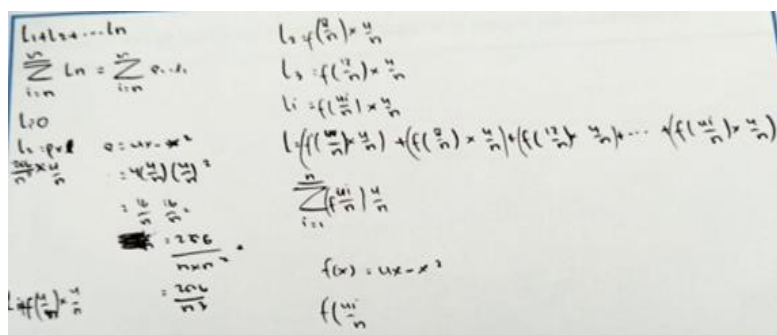 L₁+L₂+...Ln
∑ Ln = ∑
L=0
a = 4x - x²
= 4(4/n)(4/n)²
= 16/n 16/n²
= 256/n×n²
= 256/n³
L₁=f(4/n)×4/n
L₂=f(8/n)×4/n
L₃=f(12/n)×4/n
Li=f(4i/n)×4/n
L=(f(4/n)×4/n)+(f(8/n)×4/n)+(f(12/n)×4/n)+...+(f(4i/n)×4/n)
n ∑ i=1 (f 4i/n) 4/n
f(x) = 4x - x²
f(4i/n